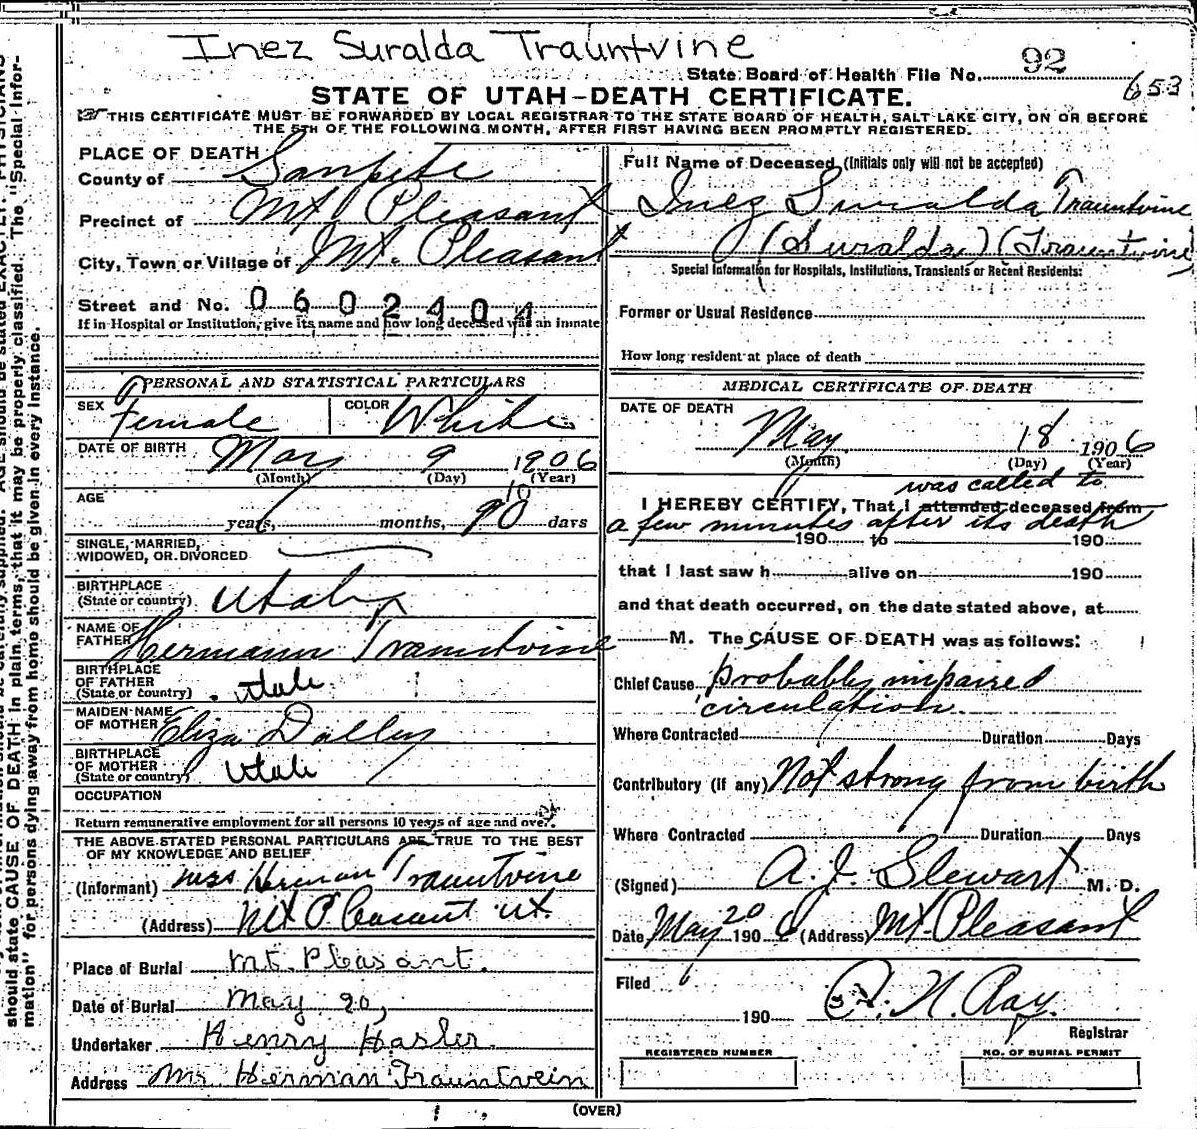 Inez Suralda Trauntvine
State Board of Health File No. 92
653
STATE OF UTAH-DEATH CERTIFICATE.
THIS CERTIFICATE MUST BE FORWARDED BY LOCAL REGISTRAR TO THE STATE BOARD OF HEALTH, SALT LAKE CITY, ON OR BEFORE
THE 5TH OF THE FOLLOWING MONTH, AFTER FIRST HAVING BEEN PROMPTLY REGISTERED.
PLACE OF DEATH
County of Sanpete
Precinct of Mt. Pleasant
City, Town or Village of Mt. Pleasant
Street and No. 0602404
If in Hospital or Institution, give its name and how long deceased was an inmate
PERSONAL AND STATISTICAL PARTICULARS
SEX Female COLOR White
DATE OF BIRTH May 9 1906
(Month) (Day) (Year)
AGE 10
years, months, days
SINGLE, MARRIED,
WIDOWED, OR DIVORCED
BIRTHPLACE
(State or country) Utah
NAME OF
FATHER Hermann Trauntvine
BIRTHPLACE
OF FATHER
(State or country) Utah
MAIDEN NAME
OF MOTHER Eliza Dalley
BIRTHPLACE
OF MOTHER
(State or country) Utah
OCCUPATION
Return remunerative employment for all persons 10 years of age and over.
THE ABOVE STATED PERSONAL PARTICULARS ARE TRUE TO THE BEST
OF MY KNOWLEDGE AND BELIEF
(Informant) Mrs Herman Trauntvine
(Address) Mt Pleasant Ut.
Place of Burial Mt. Pleasant.
Date of Burial May 20,
Undertaker Henry Hasler
Address Mr Herman Trauntvein
Full Name of Deceased (Initials only will not be accepted)
Inez Suralda Trauntvine
(Suralda) (Trauntvine)
Special Information for Hospitals, Institutions, Transients or Recent Residents:
Former or Usual Residence
How long resident at place of death
MEDICAL CERTIFICATE OF DEATH
DATE OF DEATH
May 18 1906
(Month) (Day) (Year)
was called to
I HEREBY CERTIFY, That I attended deceased from
a few minutes after its death
190 to 190
that I last saw h alive on 190
and that death occurred, on the date stated above, at
M. The CAUSE OF DEATH was as follows:
Chief Cause probably impaired
circulation
Where Contracted Duration Days
Contributory (if any) Not strong from birth
Where Contracted Duration Days
(Signed) A. J. Stewart M. D.
Date May 20 1906 (Address) Mt. Pleasant
Filed
190 N. Ray.
Registrar
REGISTERED NUMBER NO. OF BURIAL PERMIT
(OVER)
should state CAUSE OF DEATH in plain terms, that it may be properly classified. The "Special Infor-
mation" for persons dying away from home should be given in every instance.